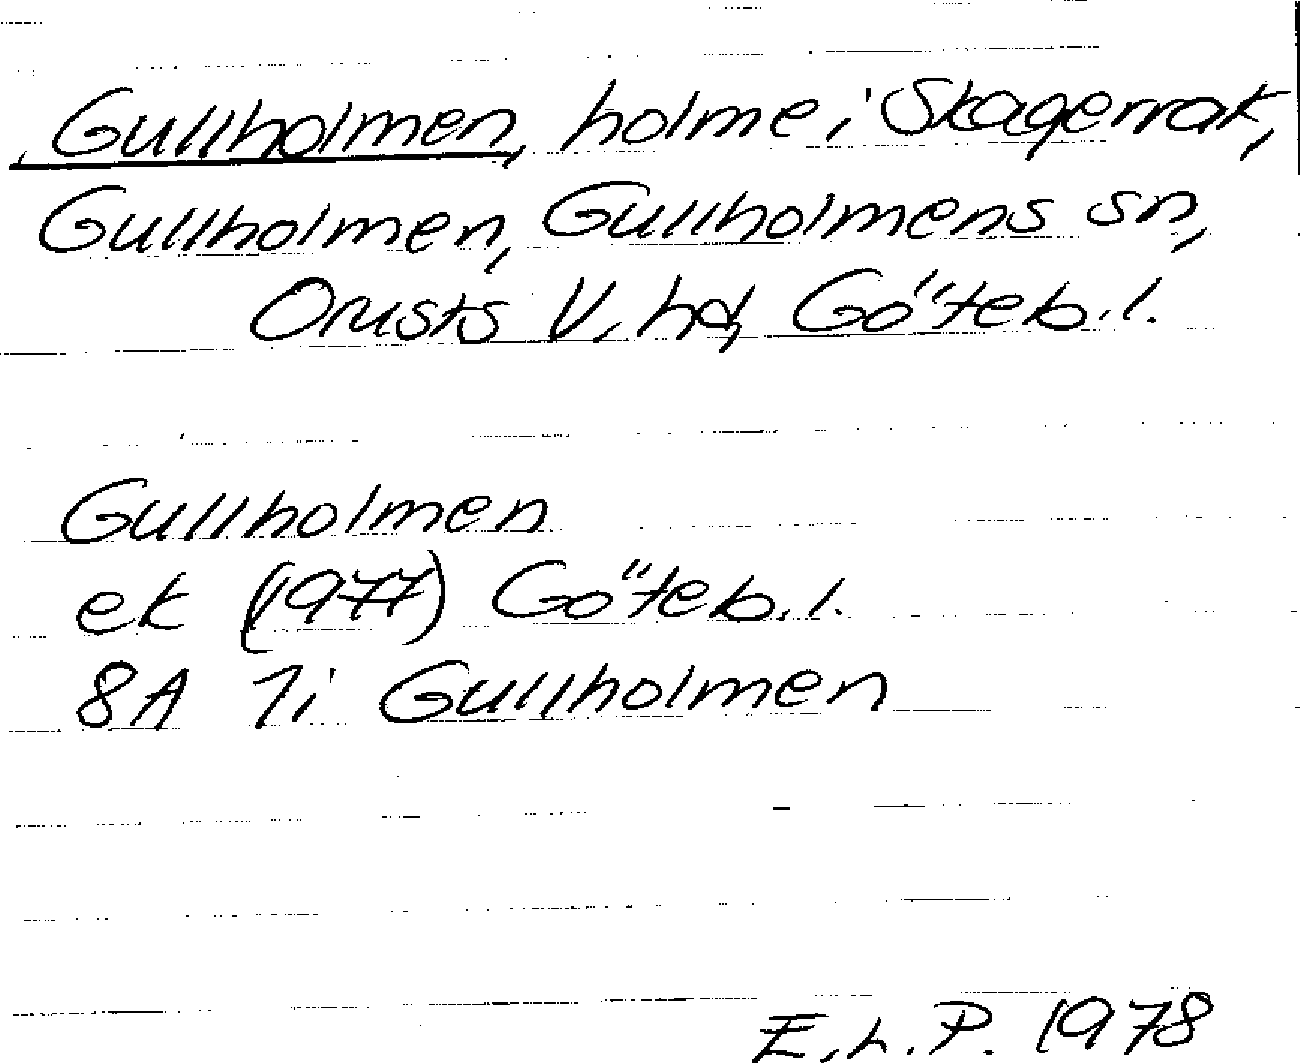 Gullholmen, holme i Skagerrak,
Gullholmen, Gullholmens sn,
Orusts V. hd, Göteb. l.
Gullholmen
ek (1977) Göteb. l.
8A 7i Gullholmen
E.L.P. 1978